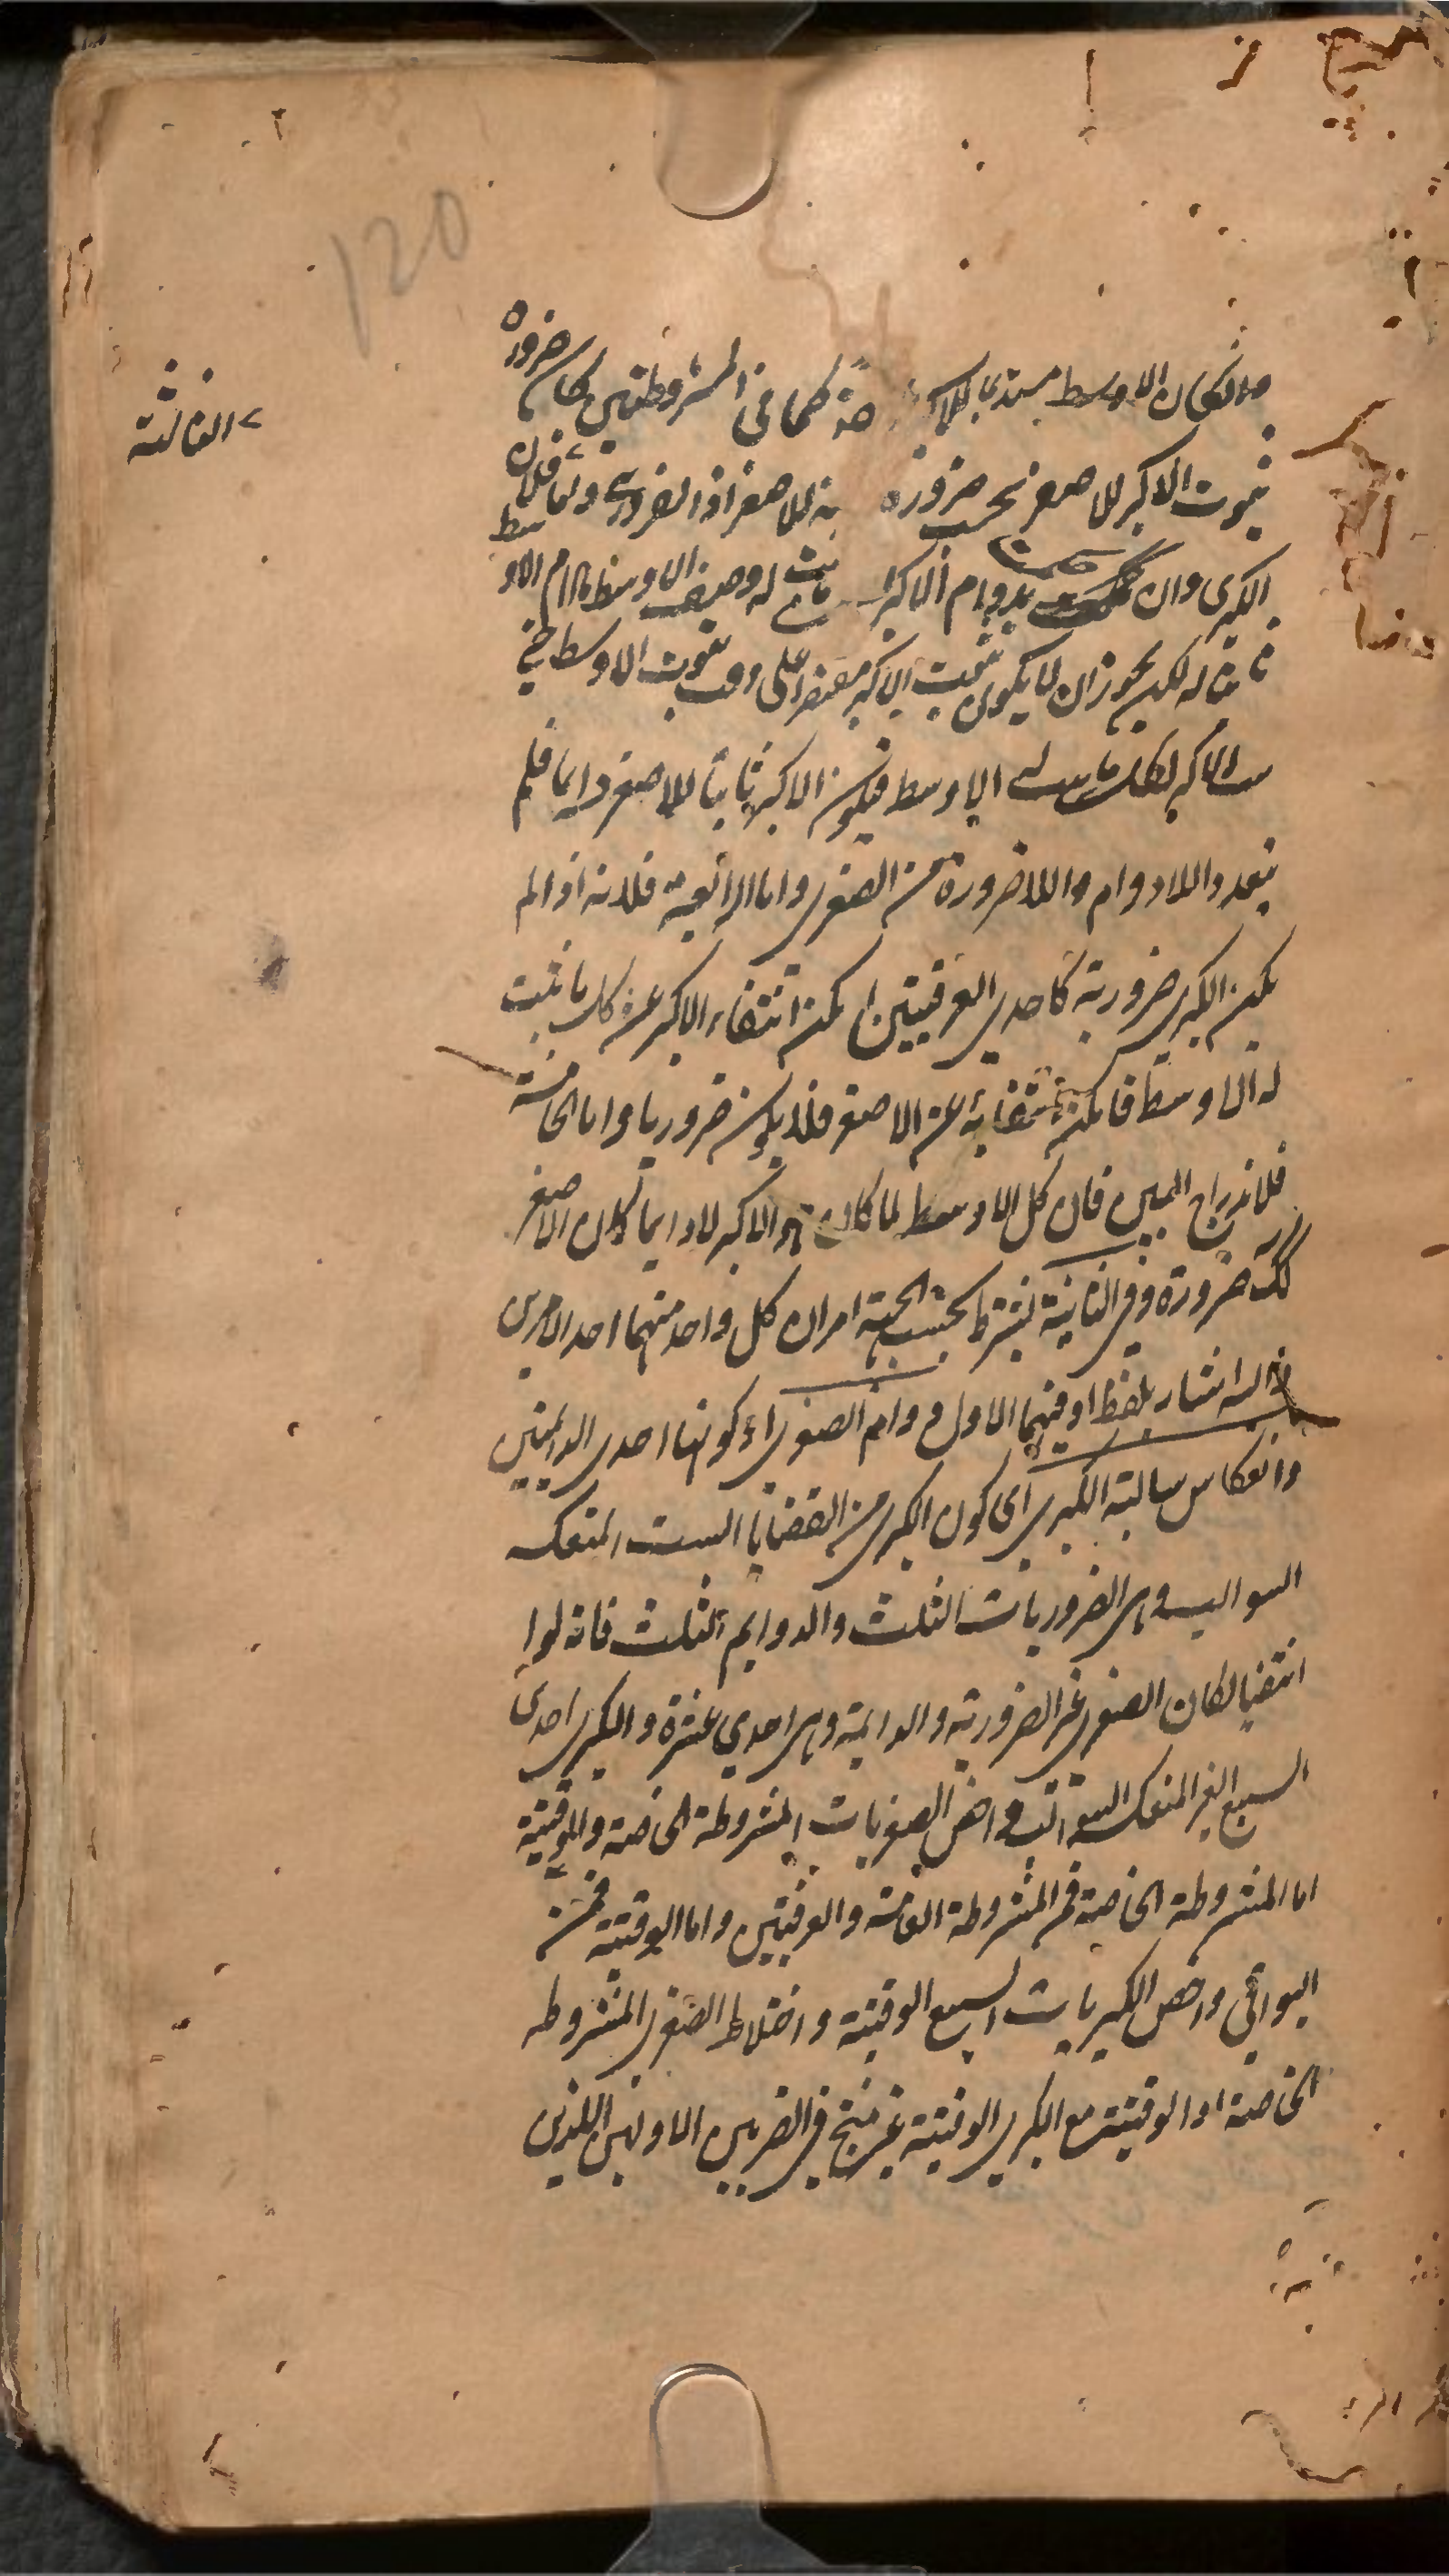 120
ولو كان الاوسط مستديما للاكبر كما فى المشروطتين كان ضرورة
ثبوت الاكبر للاصغر بحسب ضرورة للاصغر اذ الضرورى
الثالثة
الكبرى وان حكمت بدوام الاكبر ثبت له وصف الاوسط مادام الاوسط
ثابتا له لكن يجوز ان لا يكون ثبوت الاكبر مقتصرا على وقت ثبوت الاوسط
الاكبر لكل الاوسط فيكون الاكبر ثابتا للاصغر دايما فلم
يتعد واللادوام واللاضرورة من الصغرى واما الرابعة فلانه اذا لم
يكن الكبرى ضرورية كاحدى العرفيتين امكن انتفاء الاكبر عن كل ما ثبت
له الاوسط فامكن انتفائه عن الاصغر فلا يكون ضروريا واما الخامسة
فلاندراج البين فان كل الاوسط لما كان هو الاكبر لا دايما كان الاصغر
كك ضرورة وفى الثانية يشترط بحسب الجهة امران كل واحد منهما احد الامرين
اشار بلفظ او فيهما الاول دوام الصغرى اى كونها احدى الدايمتين
وانعكاس سالبة الكبرى اى كون الكبرى من القضايا الست المنعكسة
السوالب وهى الضروريات الثلث والدوايم الثلث فانه لو
انتفيا لكان الصغرى غير الضرورية والدايمة وهى احدى عشرة والكبرى احدى
السبع الغير المنعكسة السوالب واخص الصغريات المشروطة الخاصة والوقتية
اما المشروطة الخاصة فمن المشروطة العامة والعرفيتين واما الوقتية فمن
البواقى واخص الكبريات السبع الوقتية واختلاط الصغرى المشروطة
الخاصة او الوقتية مع الكبرى الوقتية غير منتج فى الضربين الاولين اللذين